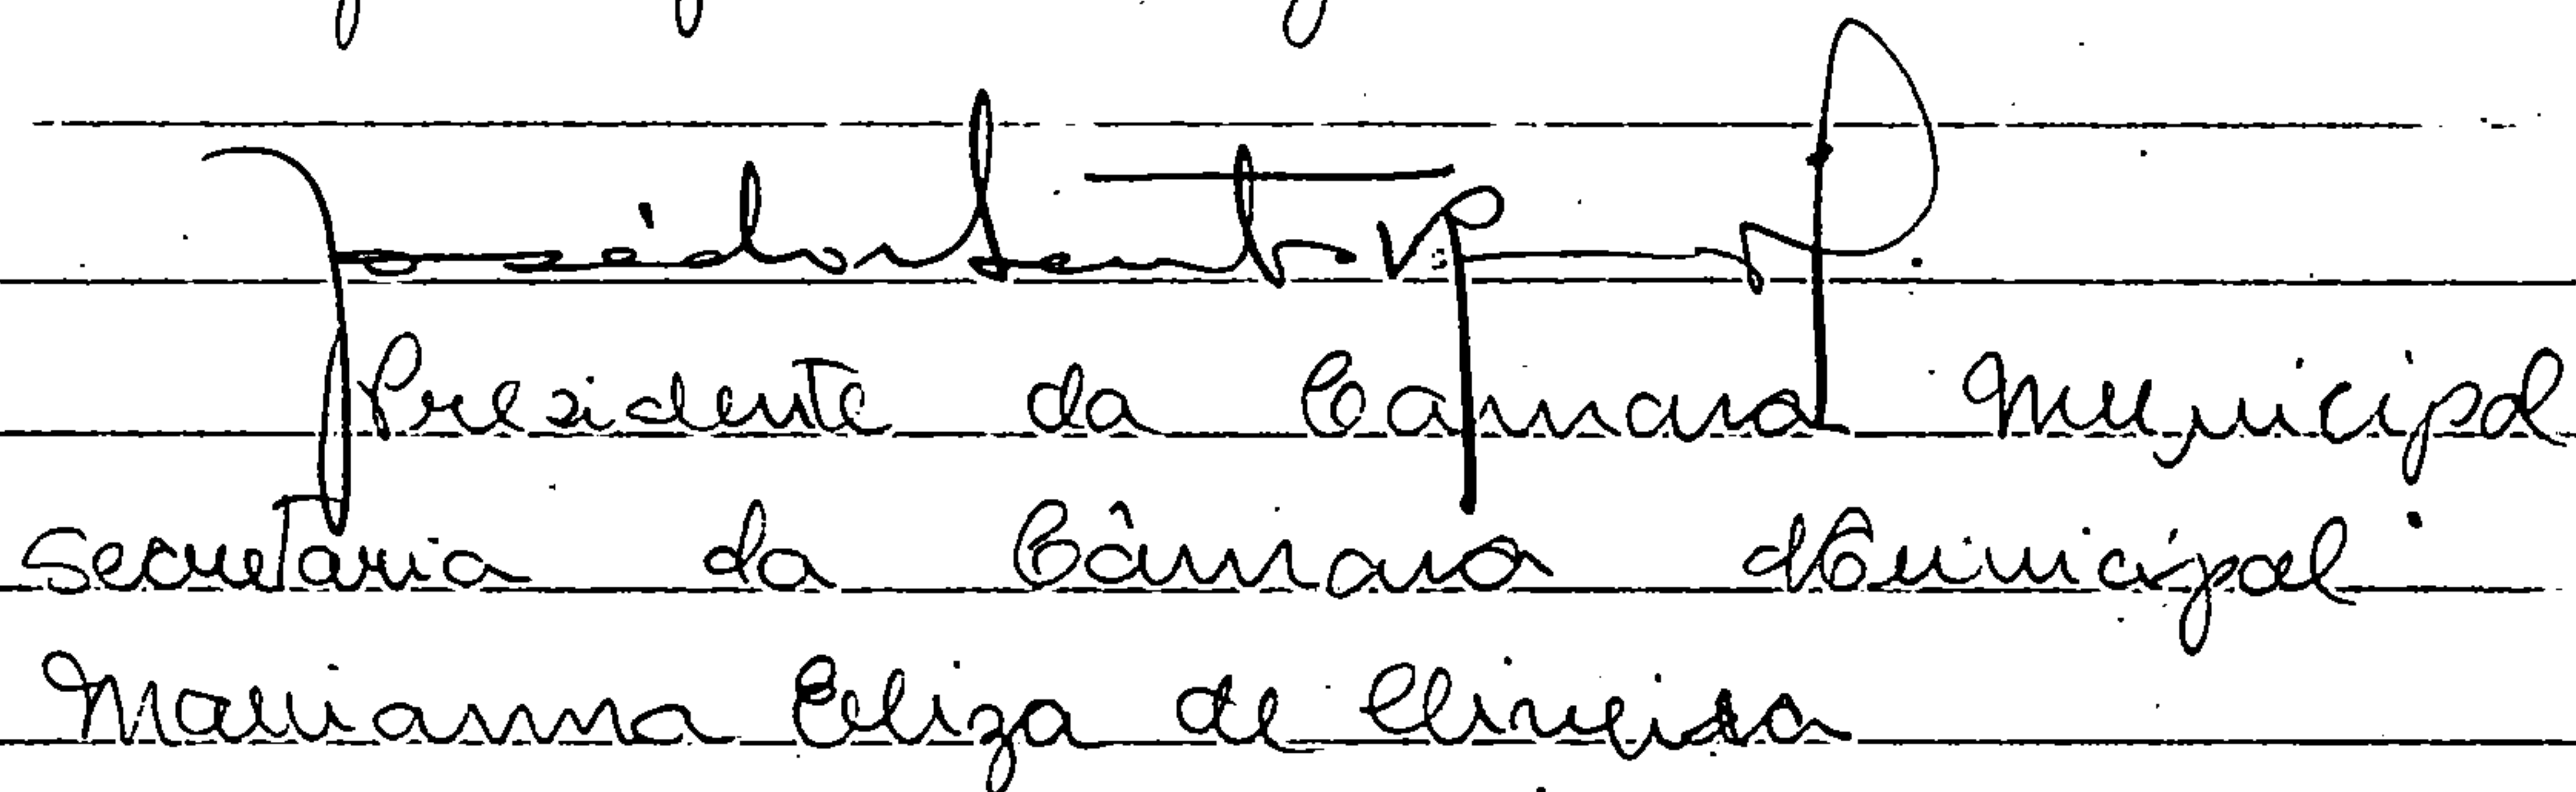 José dos Santos
Presidente da Camara Municipal
Secretaria da Câmara Municipal
Marianna Eliza de Oliveira